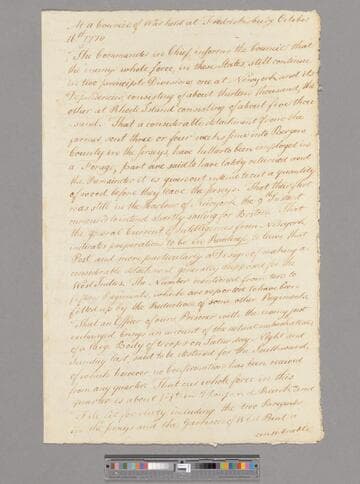 At a Council of War held at Fredericksburg October
16th 1778
The Commander in Chief informs the Council that
the enemy whole force in these States still continue
in two principle Divisions one at Newyork and its
Dependencies consisting of about thirteen thousand, the
other at Rhode Island consisting of about five thou
sand. That a considerable detachment from the
former sent three or four weeks since into Bergen
County in the Jerseys have hitherto been employed in
a Forage, part are said to have lately returned and
the Remainder it is given out intend to cut a quantity
of wood before they leave the Jerseys. That their fleet
was still in the Harbour of Newyork the 9th Instant
rumoured to intend shortly sailing for Boston. That
the general Current of Intelligences from Newyork
indicates preparations to be in Readiness to leave that
Post and more particularly a Design of making a
considerable detachment generally supposed for the
West Indies. The Number mentioned from ten to
fifteen Regiments, which are reported to have been
filled up by the Reduction of some other Regiments
That an Officer of ours Prisoner with the enemy just
exchanged brings an account of the actual embarkation
of a large Body of troops on Saturday Night and
Sunday last, said to be destined for the Southward
of which however no Confirmation has been received
from any quarter. That our whole force in this
quarter is about
File fit for duty including the two Brigades
in the Jerseys and the Garrison at West Point a
considerable